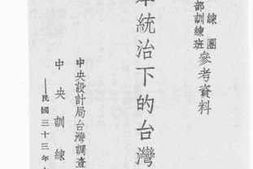 練團
部訓練班參考資料
本統治下的台灣
中央設計局台灣調查
中央訓練
—民國三十三年